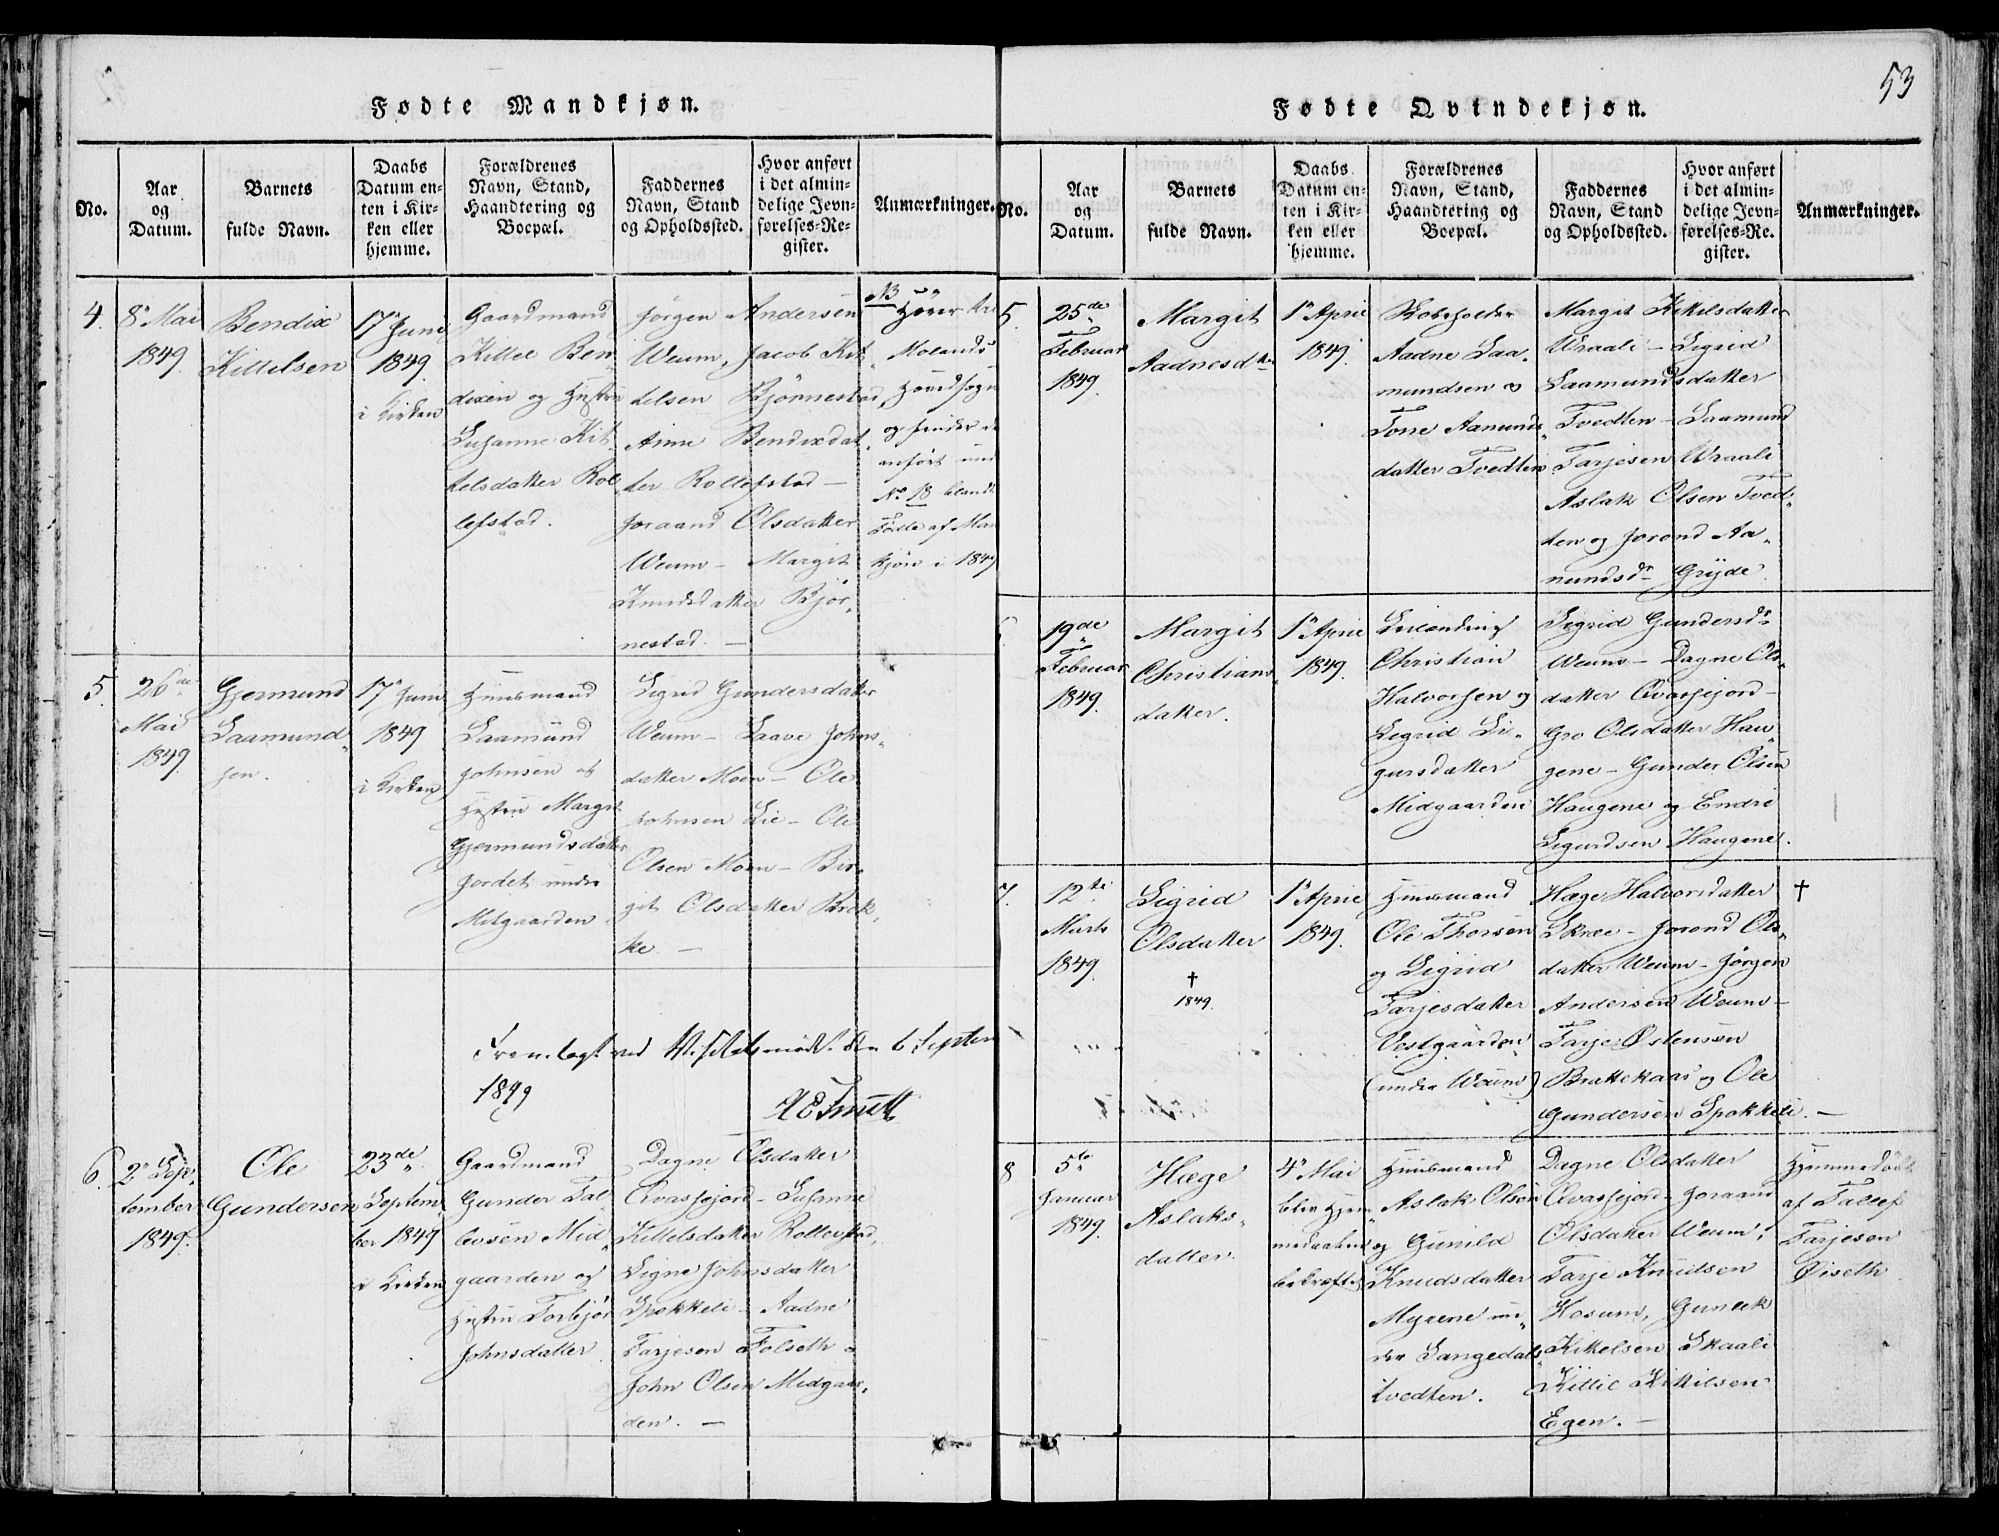 53
Fødte Mandkjøn.
No.
Aar
og
Datum.
Barnets
fulde Navn.
Daabs
Datum en-
ten i Kir-
ken eller
hjemme.
Forældrenes
Navn, Stand,
Haandtering og
Boepæl.
Faddernes
Navn, Stand
og Opholdssted.
Hvor anført
i det almin-
delige Jevn-
førelses-Re-
gister.
Anmærkninger.
4.
8de Mai
1849.
Bendix
Kittelsen
17de Juni
1849.
i Kirken
Gaardmand
Kittel Ben„
dixen og Hustru
Susanne Kit„
telsdatter Rol„
lefstad.
Jørgen Andersen
Weum, Jacob Kit„
telsen Bjørnestad,
Anne Bendixdat„
ter Rollefstad –
Joraand Olsdatter
Weum – Margit
Knudsdatter Bjør„
nestad. –
NB
Hører
Molands
Hovedsogn
og findes
anført
No 18 blandt
Fødte af
Kjøn i 1849
5.
26de
Mai
1849.
Gjermund
Saamund„
sen.
17de Juni
1849
i Kirken
Huusmand
Saamund
Johnsen og
Hustru Margit
Gjermundsdatter
Jordet under
Midgaarden
Sigrid Gundersdatter
Weum – Laave Johns„
datter Moen – Ole
Johnsen Lie – Ole
Olsen Moen – Bir„
git Olsdatter Brek„
ke. –
Fremlagt ved Visitatsmødet den 6 Septen
1849
6.
2de Sep„
tember
1849.
Ole
Gundersen
23de
Septem„
ber 1849
i Kirken
Gaardmand
Gunder Tal„
levsen Mid„
gaarden og
Hustru Torbjør
Johnsdatter
Dagne Olsdatter
Qvasfjord – Susanne
Kittelsdatter Rollefstad,
Signe Johnsdatter
Spokkeli – Aadne
Tarjesen Folseth –
John Olsen Midgaar„
den. –
Fødte Qvindekjøn.
No.
Aar
og
Datum.
Barnets
fulde Navn.
Daabs
Datum en-
ten i Kir-
ken eller
hjemme.
Forældrenes
Navn, Stand,
Haandtering og
Boepæl.
Faddernes
Navn, Stand
og Opholdssted.
Hvor anført
i det almin-
delige Jevn-
førelses-Re-
gister.
Anmærkninger.
5.
25de
Februar
1849.
Margit
Aadnesdtr
1de April
1849.
Aadne Saa„
mundsen og
Tone Aamunds„
datter Tvedten
Margit Kittelsdatter
Wraali – Sigrid
Saamundsdatter
Tvedten – Saamund
Tarjesen Wraali
Aslak Olsen Tved„
ten og Jorond Aa„
nundsdr Gryde.
19de
Februar
1849.
Margit
Christians„
datter.
1de April
1849.
Leilending
Christian
Halvorsen og
Sigrid Si„
gursdatter
Midgaarden
Sigrid Gundersdr
Weum – Dagne Ols„
datter Qvasfjord –
Gro Olsdatter Hau„
gene – Gunder Olsen
Haugene og Endre
Sigurdsen Haugene.
7.
12te
Marts
1849.
Sigrid
Olsdatter
†
1849.
1de April
1849.
Huusmand
Ole Thorsen
og Sigrid
Tarjesdatter
Vestgaarden
(under Weum)
Hæge Halvorsdatter
Skree – Jorond Ols„
datter Weum – Jørgen
Andersen Weum –
Tarje Østensen
Brattekaas og Ole
Gundersen Spokkeli. –
†
8
5te
Januar
1849.
Hæge
Aslaks„
datter.
4de Mai
blev Hjem„
medaaben
bekræftet
Huusmand
Aslak Olsen
og Gunild
Knudsdatter
Myrene un„
der Langedals„
tvedten.
Dagne Olsdatter
Qvasfjord – Joraand
Olsdatter Weum,
Tarje Knudsen
Kosum, Gunlek
Kittelsen Skaali
Kittil Kittilsen
Egen. –
Hjemmedøbt
af Tallef
Tarjesen
Øiseth